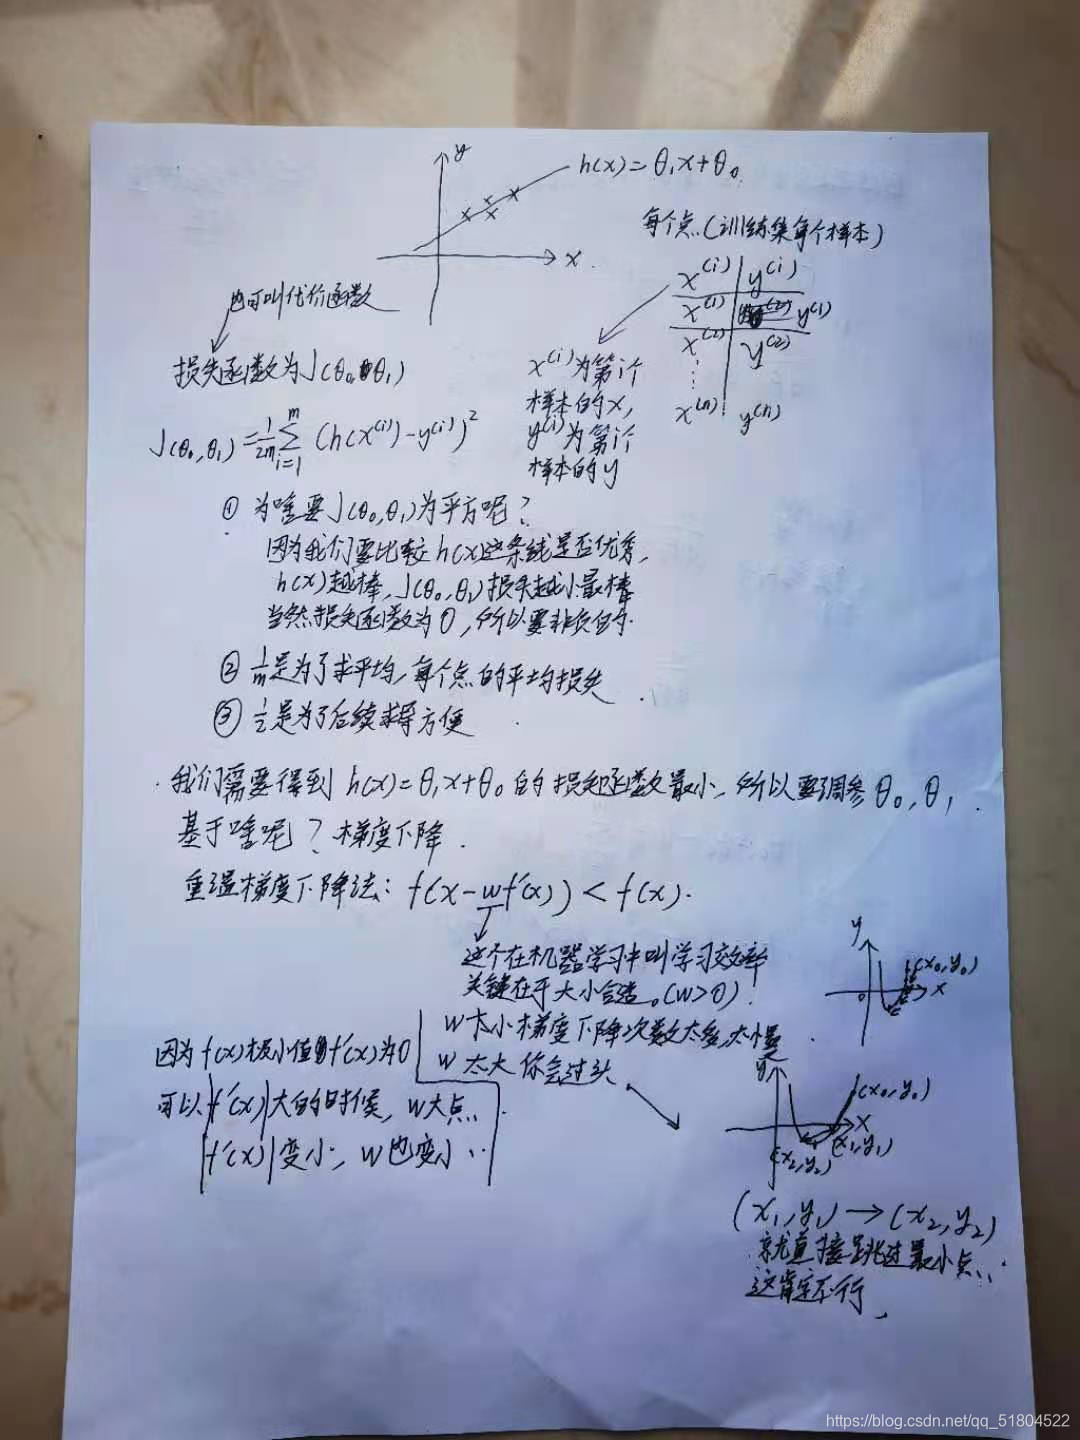 y
h(x)=θ₁x+θ₀
x
每个点(训练集每个样本)
x⁽ⁱ⁾ y⁽ⁱ⁾
x⁽¹⁾ y⁽¹⁾
x⁽²⁾ y⁽²⁾
⋮
x⁽ⁿ⁾ y⁽ⁿ⁾
也可叫代价函数
损失函数为J(θ₀,θ₁)
x⁽ⁱ⁾为第i个
样本的x,
y⁽ⁱ⁾为第i个
样本的y
J(θ₀,θ₁)=1/2m ∑ᵢ₌₁ᵐ (h(x⁽ⁱ⁾)-y⁽ⁱ⁾)²
① 为啥要J(θ₀,θ₁)为平方呢?
因为我们要比较h(x)这条线是否优秀,
h(x)越棒,J(θ₀,θ₁)损失越小最棒
当然损失函数为0,所以要非负的.
② 1/m是为了求平均,每个点的平均损失.
③ 1/2是为了后续求导方便.
我们需要得到h(x)=θ₁x+θ₀的损失函数最小,所以要调参θ₀,θ₁.
基于啥呢?梯度下降.
重温梯度下降法:f(x-wf'(x))<f(x).
这个在机器学习中叫学习效率
关键在于大小合适。(w>0).
w太小梯度下降次数太多,太慢.
w太大你会过头
因为f(x)极小值f'(x)为0
可以|f'(x)|大的时候,w大点.
|f'(x)|变小,w也变小..
y
(x₀,y₀)
0
x
y
(x₀,y₀)
x
(x₁,y₁)
(x₂,y₂)
(x₁,y₁)→(x₂,y₂)
就直接跳过最小点..
这肯定不行,
https://blog.csdn.net/qq_51804522